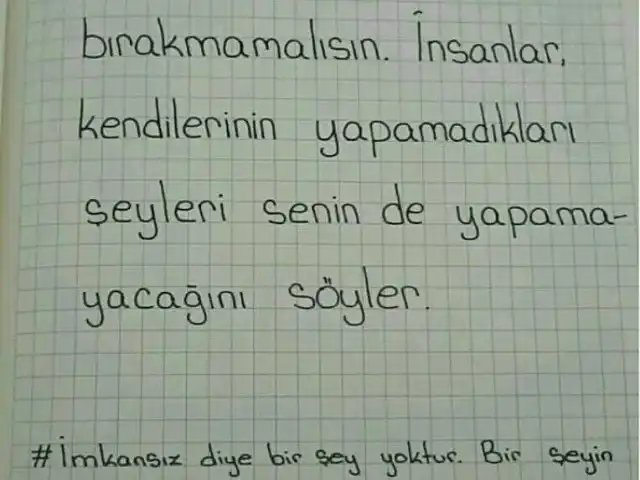 bırakmamalısın. İnsanlar,
kendilerinin yapamadıkları
şeyleri senin de yapama-
yacağını söyler.
#İmkansız diye bir şey yoktur. Bir şeyin